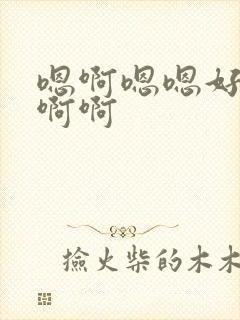 嗯啊嗯嗯好
啊啊
捡火柴的木木